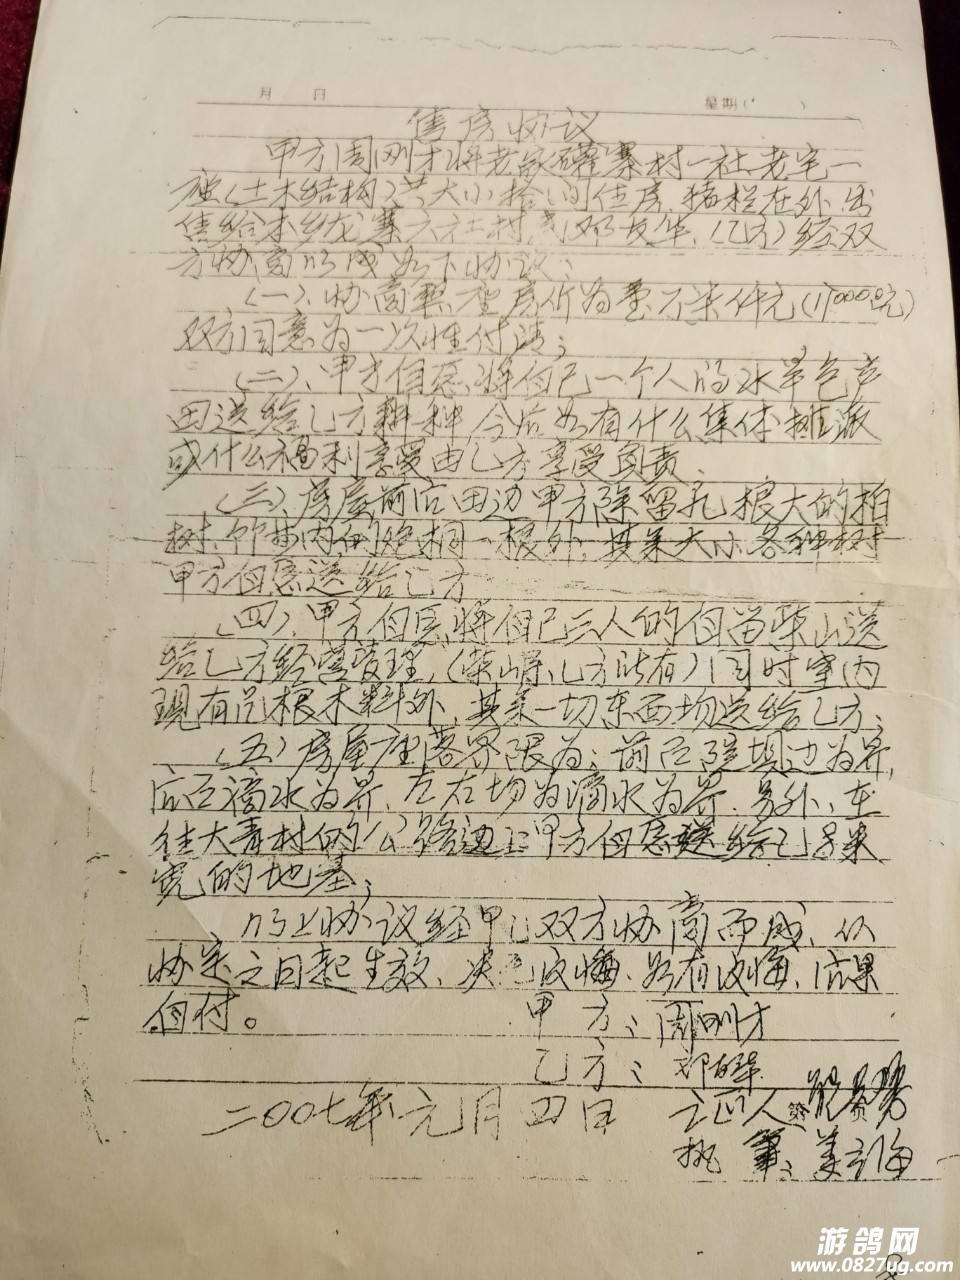 月 日 星期( )
售房协议
甲方周刚才将老家礶寨村一社老宅一
座(土木结构)共大小拾间住房,猪栏在外,出
售给本乡龙寨六社村民邓友华,(乙方)经双
方协商以成如下协议:
(一)、协商整座房价为壹万柒仟元(17000.0元)
双方同意为一次性付清;
(二)、甲方自愿将自己一个人的水旱包产
田送给乙方耕种,今后如有什么集体摊派
或什么福利享受由乙方享受负责、
(三)、房屋前后田边甲方除留几根大的柏
树、竹林内的泡桐一根外,其余大小各种树
甲方自愿送给乙方
(四)、甲方自愿将自己三人的自留柴山送
给乙方经营管理,(柴山归乙方所有)同时室内
现有几根木料外,其余一切东西均送给乙方、
(五)房屋座落界限为:前已院坝边为界,
后已滴水为界、左右均为滴水为界.另外,在
往大青村的公路边上甲方自愿送给乙方 米
宽的地基;
以上协议经甲乙双方协商而成、从
协定之日起生效、决 反悔、如有反悔、后果
自付。 甲 方:周刚才
乙方:邓友华
二00七年元月四日 证人
执 笔:姜 海
游鸽网
www.0827ug.com